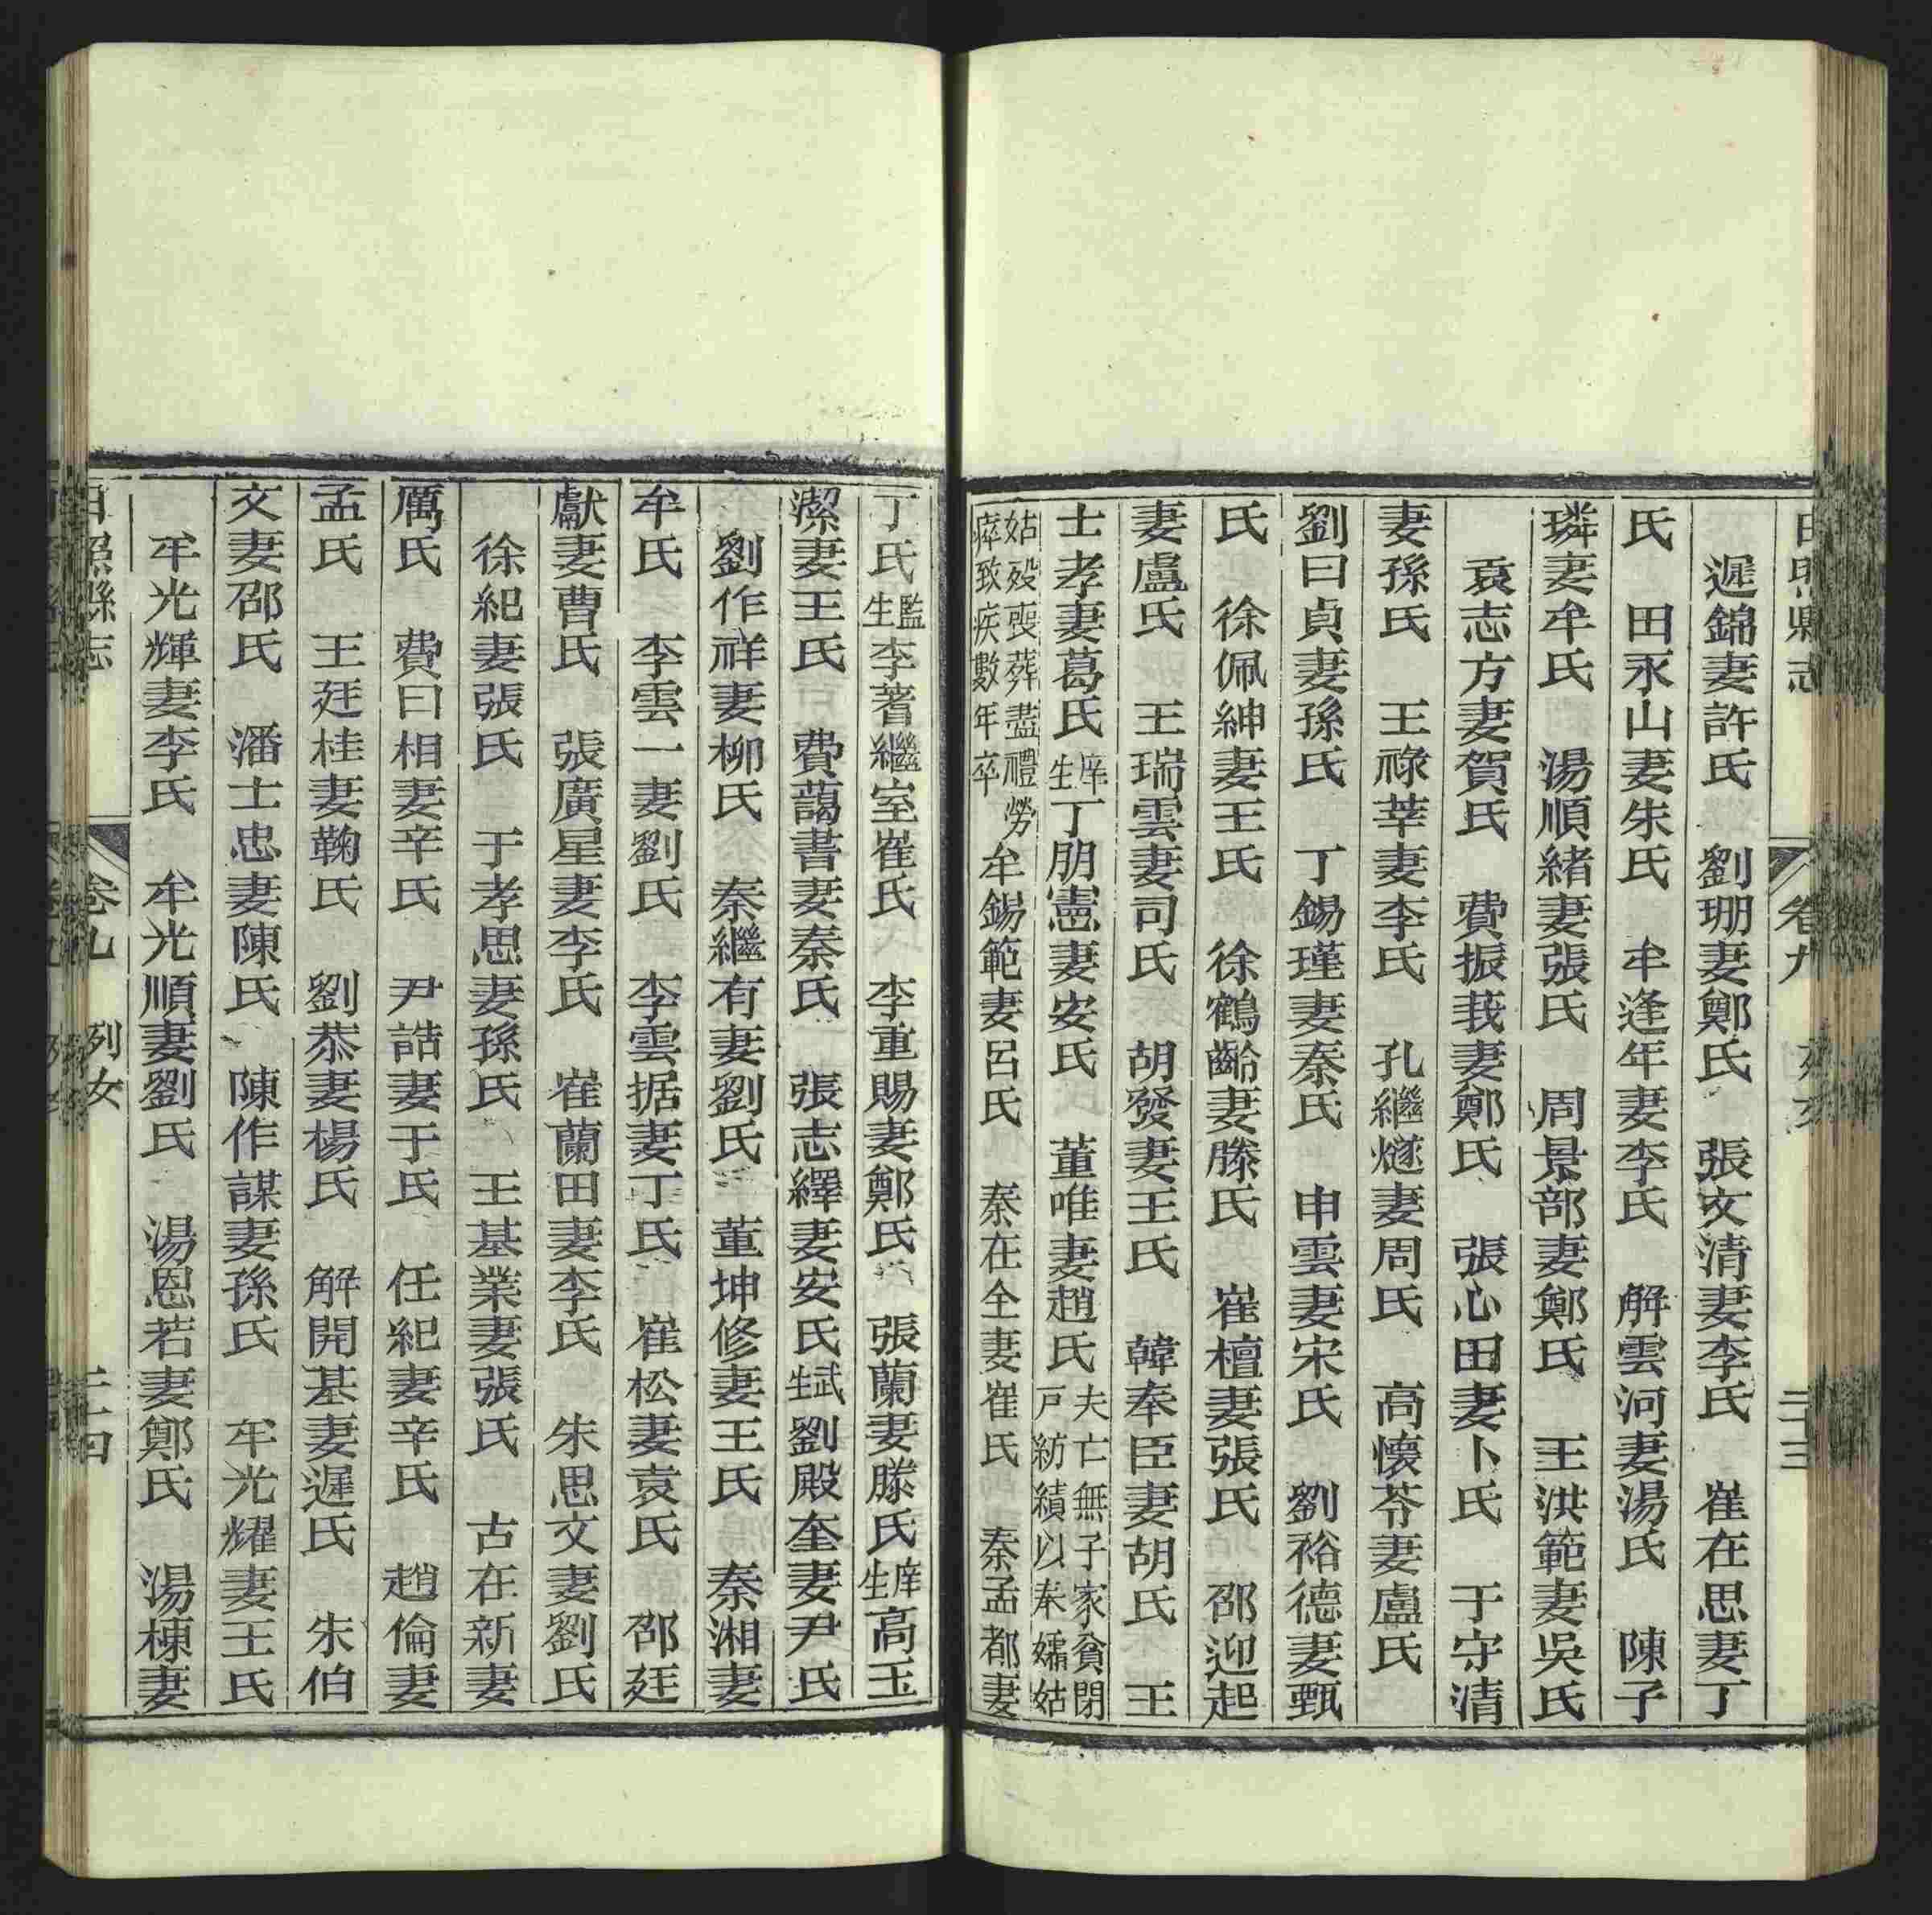 日照縣志 卷九 列女 二十三
遲錦妻許氏 劉珊妻鄭氏 張文清妻李氏 崔在思妻丁
氏 田永山妻朱氏 牟逢年妻李氏 解雲河妻湯氏 陳子
璘妻牟氏 湯順緒妻張氏 周景部妻鄭氏 王洪範妻吳氏
袁志方妻賀氏 費振莪妻鄭氏 張心田妻卜氏 于守清
妻孫氏 王祿莘妻李氏 孔繼燧妻周氏 高懷苓妻盧氏
劉曰貞妻孫氏 丁錫瑾妻秦氏 申雲妻宋氏 劉裕德妻甄
氏 徐佩紳妻王氏 徐鶴齡妻滕氏 崔檀妻張氏 邵迎起
妻盧氏 王瑞雲妻司氏 胡發妻王氏 韓奉臣妻胡氏 王
士孝妻葛氏 庠生丁朋憲妻安氏 董唯妻趙氏 夫亡無子家貧閉戶紡績以奉孀姑
姑歿喪葬盡禮勞瘁致疾數年卒 牟錫範妻呂氏 秦在全妻崔氏 秦孟都妻
丁氏 監生李蓍繼室崔氏 李重賜妻鄭氏 張蘭妻滕氏 庠生高玉
潔妻王氏 費藹書妻秦氏 張志繹妻安氏 武生劉殿奎妻尹氏
劉作祥妻柳氏 秦繼有妻劉氏 董坤修妻王氏 秦湘妻
牟氏 李雲一妻劉氏 李雲据妻丁氏 崔松妻袁氏 邵廷
獻妻曹氏 張廣星妻李氏 崔蘭田妻李氏 朱思文妻劉氏
徐紀妻張氏 于孝思妻孫氏 王基業妻張氏 古在新妻
厲氏 費曰相妻辛氏 尹誥妻于氏 任紀妻辛氏 趙倫妻
孟氏 王廷桂妻鞠氏 劉恭妻楊氏 解開基妻遲氏 朱伯
文妻邵氏 潘士忠妻陳氏 陳作謀妻孫氏 牟光耀妻王氏
牟光輝妻李氏 牟光順妻劉氏 湯恩若妻鄭氏 湯棟妻
日照縣志 卷九 列女 二十四